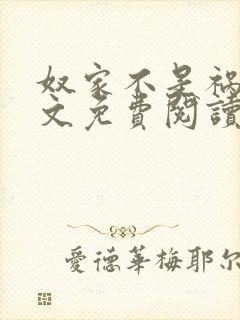 奴家不是禍
文免費閱讀
愛德華梅耶尔